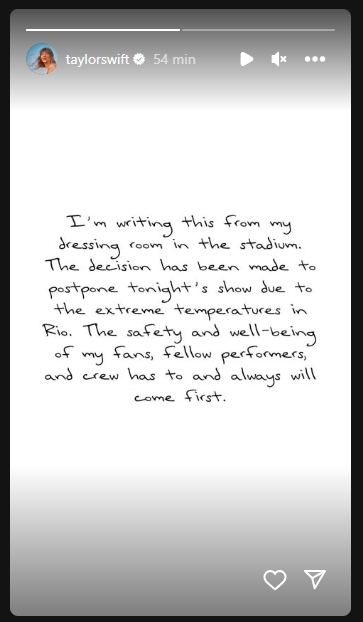 taylorswift 54 min
I'm writing this from my
dressing room in the stadium.
The decision has been made to
postpone tonight's show due to
the extreme temperatures in
Rio. The safety and well-being
of my fans, fellow performers,
and crew has to and always will
come first.